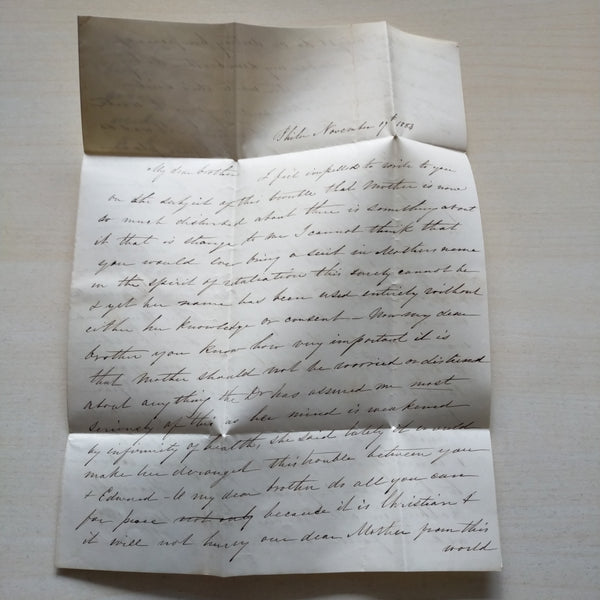 Phila November 17th 1853
My dear brother I feel impelled to write to you
on the subject of this trouble that Mother is now
so much disturbed about there is something about
it that is strange to me I cannot think that
you would ever bring a suit in Mothers name
in the spirit of retaliation this surely cannot be
& yet her name has been used entirely without
either her knowledge or consent – Now my dear
brother you know how very important it is
that Mother should not be worried or distressed
about anything the Dr has assured me most
seriously of this as her mind is weakened
by infirmity of health, she said lately it would
make her deranged this trouble between you
& Edward – O my dear brother do all you can
for peace not only because it is Christian &
it will not hurry our dear Mother from this
world